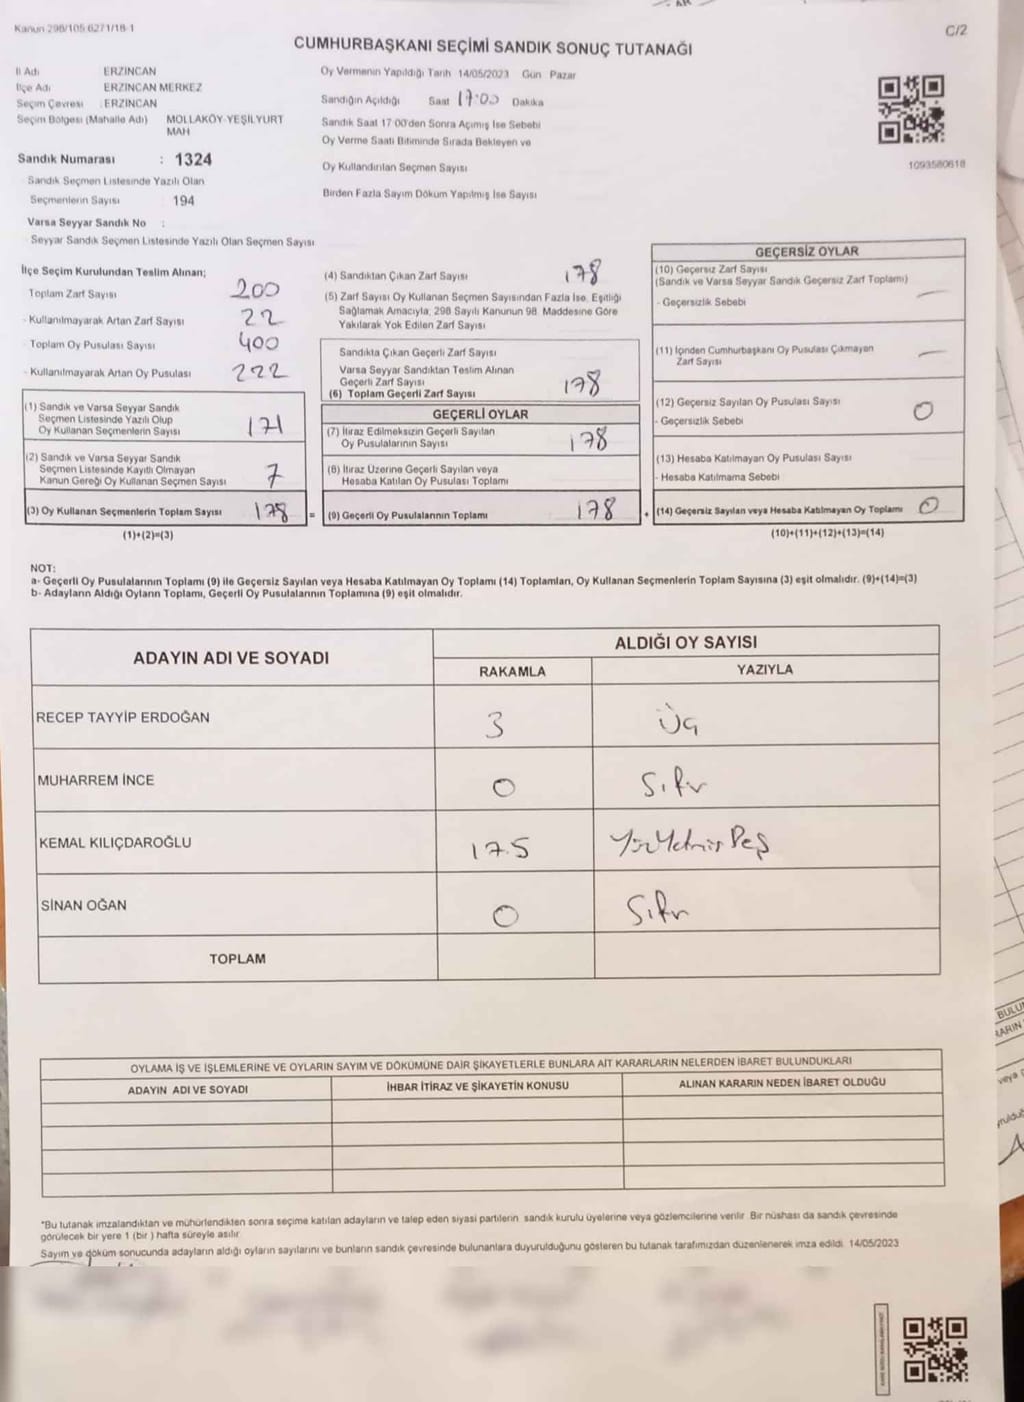 Kanun 298/105 6271/18-1
C/2
CUMHURBAŞKANI SEÇİMİ SANDIK SONUÇ TUTANAĞI
İl Adı ERZİNCAN
İlçe Adı ERZİNCAN MERKEZ
Seçim Çevresi : ERZİNCAN
Seçim Bölgesi (Mahalle Adı) MOLLAKÖY-YEŞİLYURT
MAH
Sandık Numarası : 1324
Sandık Seçmen Listesinde Yazılı Olan
Seçmenlerin Sayısı 194
Varsa Seyyar Sandık No :
Seyyar Sandık Seçmen Listesinde Yazılı Olan Seçmen Sayısı
Oy Vermenin Yapıldığı Tarih 14/05/2023 Gün Pazar
Sandığın Açıldığı Saat 17:00 Dakika
Sandık Saat 17 00'den Sonra Açımış İse Sebebi
Oy Verme Saati Bitiminde Sırada Bekleyen ve
Oy Kullandırılan Seçmen Sayısı
Birden Fazla Sayım Döküm Yapılmış İse Sayısı
1093580618
İlçe Seçim Kurulundan Teslim Alınan;
Toplam Zarf Sayısı 200
- Kullanılmayarak Artan Zarf Sayısı 22
- Toplam Oy Pusulası Sayısı 400
- Kullanılmayarak Artan Oy Pusulası 222
(1) Sandık ve Varsa Seyyar Sandık
Seçmen Listesinde Yazılı Olup
Oy Kullanan Seçmenlerin Sayısı 171
(2) Sandık ve Varsa Seyyar Sandık
Seçmen Listesinde Kayıtlı Olmayan
Kanun Gereği Oy Kullanan Seçmen Sayısı 7
(3) Oy Kullanan Seçmenlerin Toplam Sayısı 178 =
(1)+(2)=(3)
(4) Sandıktan Çıkan Zarf Sayısı 178
(5) Zarf Sayısı Oy Kullanan Seçmen Sayısından Fazla İse, Eşitliği
Sağlamak Amacıyla, 298 Sayılı Kanunun 98. Maddesine Göre
Yakılarak Yok Edilen Zarf Sayısı
Sandıkta Çıkan Geçerli Zarf Sayısı
Varsa Seyyar Sandıktan Teslim Alınan
Geçerli Zarf Sayısı
(6) Toplam Geçerli Zarf Sayısı 178
GEÇERLİ OYLAR
(7) İtiraz Edilmeksizin Geçerli Sayılan
Oy Pusulalarının Sayısı 178
(8) İtiraz Üzerine Geçerli Sayılan veya
Hesaba Katılan Oy Pusulası Toplamı
(9) Geçerli Oy Pusulalarının Toplamı 178 +
GEÇERSİZ OYLAR
(10) Geçersiz Zarf Sayısı
(Sandık ve Varsa Seyyar Sandık Geçersiz Zarf Toplamı) —
- Geçersizlik Sebebi
(11) İçinden Cumhurbaşkanı Oy Pusulası Çıkmayan
Zarf Sayısı —
(12) Geçersiz Sayılan Oy Pusulası Sayısı 0
- Geçersizlik Sebebi
(13) Hesaba Katılmayan Oy Pusulası Sayısı
- Hesaba Katılmama Sebebi
(14) Geçersiz Sayılan veya Hesaba Katılmayan Oy Toplamı 0
(10)+(11)+(12)+(13)=(14)
NOT:
a- Geçerli Oy Pusulalarının Toplamı (9) ile Geçersiz Sayılan veya Hesaba Katılmayan Oy Toplamı (14) Toplamları, Oy Kullanan Seçmenlerin Toplam Sayısına (3) eşit olmalıdır. (9)+(14)=(3)
b- Adayların Aldığı Oyların Toplamı, Geçerli Oy Pusulalarının Toplamına (9) eşit olmalıdır.
ADAYIN ADI VE SOYADI ALDIĞI OY SAYISI
RAKAMLA YAZIYLA
RECEP TAYYİP ERDOĞAN 3 Üç
MUHARREM İNCE 0 Sıfır
KEMAL KILIÇDAROĞLU 175 YüzYetmişBeş
SİNAN OĞAN 0 Sıfır
TOPLAM
OYLAMA İŞ VE İŞLEMLERİNE VE OYLARIN SAYIM VE DÖKÜMÜNE DAİR ŞİKAYETLERLE BUNLARA AİT KARARLARIN NELERDEN İBARET BULUNDUKLARI
ADAYIN ADI VE SOYADI İHBAR İTİRAZ VE ŞİKAYETİN KONUSU ALINAN KARARIN NEDEN İBARET OLDUĞU
*Bu tutanak imzalandıktan ve mühürlendikten sonra seçime katılan adayların ve talep eden siyasi partilerin sandık kurulu üyelerine veya gözlemcilerine verilir. Bir nüshası da sandık çevresinde
görülecek bir yere 1 (bir ) hafta süreyle asılır.
Sayım ve döküm sonucunda adayların aldığı oyların sayılarını ve bunların sandık çevresinde bulunanlara duyurulduğunu gösteren bu tutanak tarafımızdan düzenlenerek imza edildi. 14/05/2023